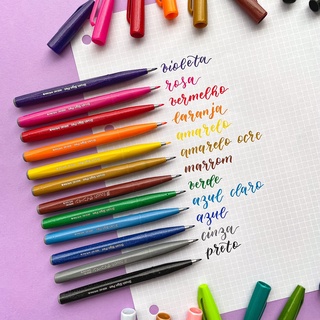 violeta
rosa
vermelho
laranja
amarelo
amarelo ocre
marrom
verde
azul claro
azul
cinza
preto